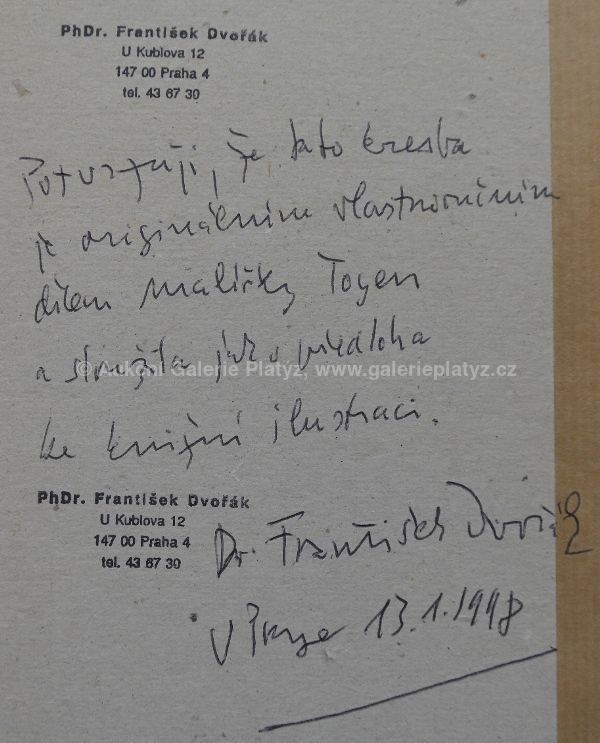 PhDr. František Dvořák
U Kublova 12
147 00 Praha 4
tel. 43 67 30
Potvrzuji, že tato kresba
je originálním vlastnoručním
dílem malířky Toyen
a sloužila jako předloha
© Aukční Galerie Platýz, www.galerieplatyz.cz
ke knižní ilustraci.
PhDr. František Dvořák
U Kublova 12
147 00 Praha 4
tel. 43 67 30
Dr. František Dvořák
V Praze 13.1.1998